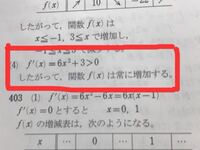 したがって、関数 f(x) は
x≦-1, 3≦x で増加し,
(4) f'(x)=6x²+3>0
したがって、関数 f(x) は常に増加する。
403 (1) f'(x)=6x²-6x=6x(x-1)
f'(x)=0とすると x=0, 1
f(x) の増減表は、次のようになる。
x … 0 … 1